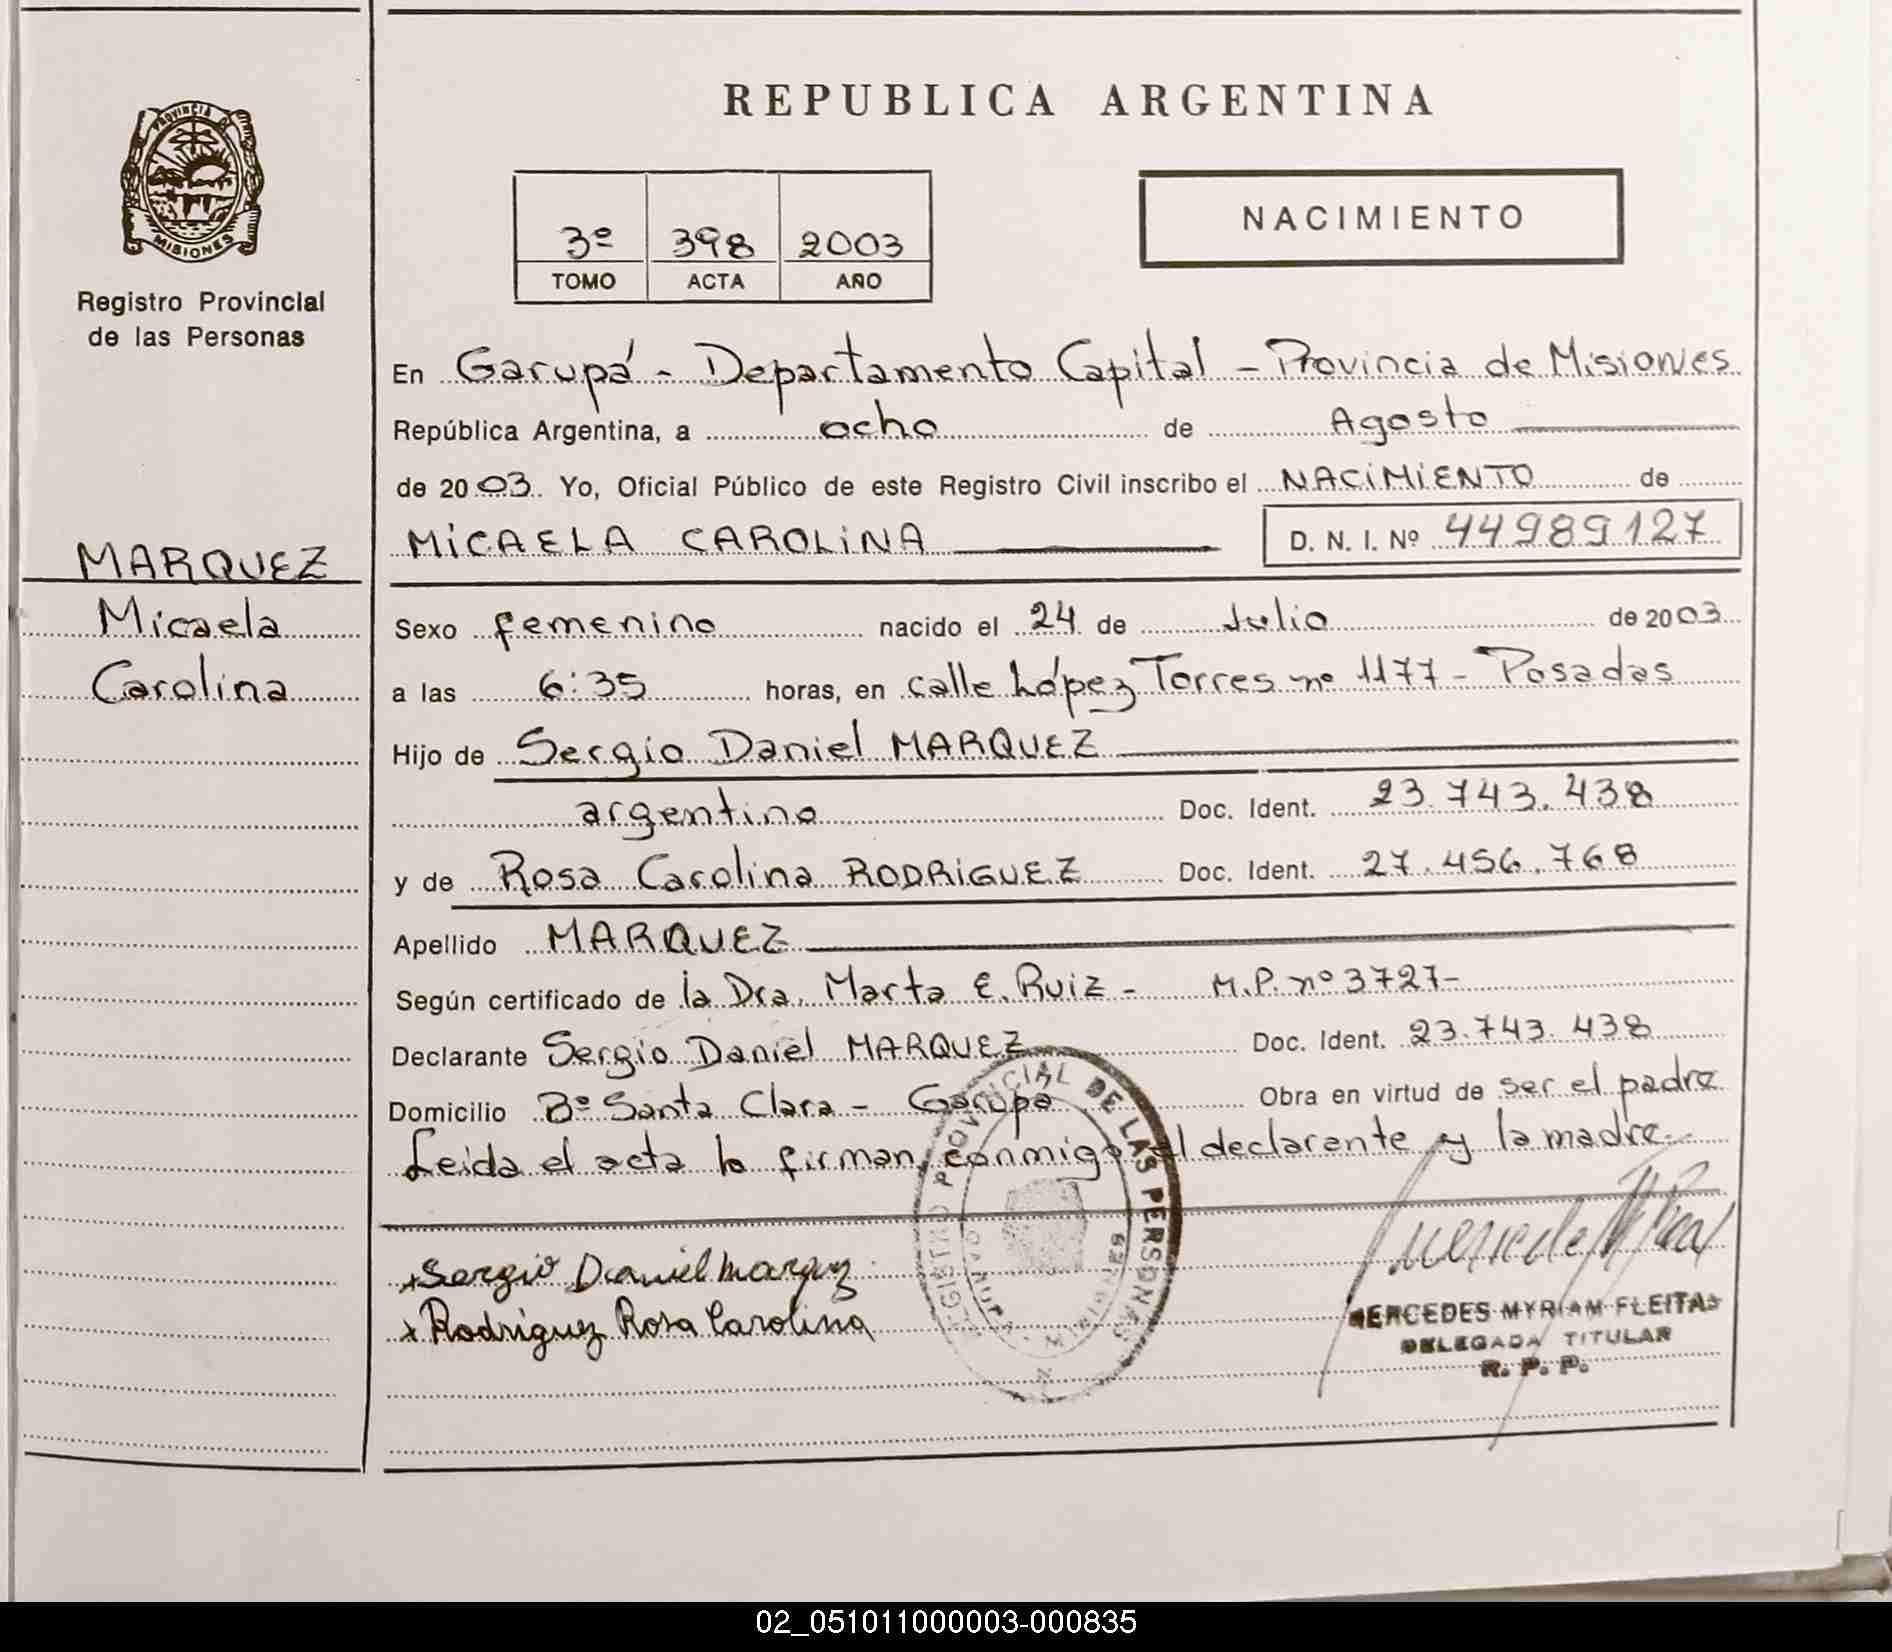 REPUBLICA ARGENTINA
PROVINCIA DE
MISIONES
Registro Provincial
de las Personas
3º 398 2003
TOMO ACTA AÑO
NACIMIENTO
En Garupá - Departamento Capital - Provincia de Misiones
República Argentina, a ocho de Agosto
de 2003. Yo, Oficial Público de este Registro Civil inscribo el NACIMIENTO de
MICAELA CAROLINA D. N. I. Nº 44989127
MARQUEZ
Micaela
Carolina
Sexo femenino nacido el 24 de Julio de 2003
a las 6:35 horas, en calle López Torres nº 1177 - Posadas
Hijo de Sergio Daniel MARQUEZ
argentino Doc. Ident. 23.743.438
y de Rosa Carolina RODRIGUEZ Doc. Ident. 27.456.768
Apellido MARQUEZ
Según certificado de la Dra. Marta E. Ruiz - M.P. nº 3727-
Declarante Sergio Daniel MARQUEZ Doc. Ident. 23.743.438
Domicilio Bº Santa Clara - Garupá Obra en virtud de ser el padre
Leida el acta la firman conmigo el declarante y la madre.
REGISTRO PROVINCIAL DE LAS PERSONAS
GARUPA - MISIONES
Sergio Daniel Marquez
Rodríguez Rosa Carolina
MERCEDES MYRIAM FLEITAS
DELEGADA TITULAR
R. P. P.
02_051011000003-000835